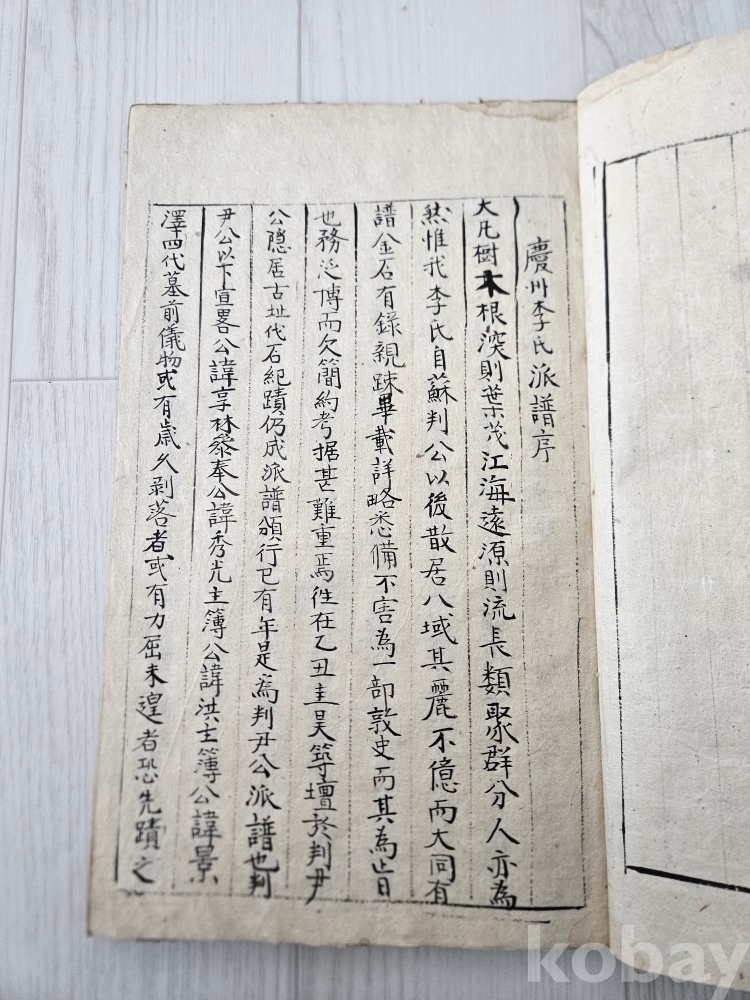 慶州李氏派譜序
大凡樹木根深則葉茂江海遠源則流長類聚群分人亦為
然惟我李氏自蘇判公以後散居八域其麗不億而大同有
譜金石有錄親踈畢載詳略悉備不害為一部敦史而其為
也務泛博而欠簡約考据甚難重焉徃在乙丑圭昊等壇於判尹
公隱居古址代石紀蹟仍成派譜頒行已有年是為判尹公派譜也判
尹公以下宣畧公諱享林叅奉公諱秀光主簿公諱洪主簿公諱景
澤四代墓前儀物或有歲久剝落者或有力屈未遑者恐先蹟之
kobay